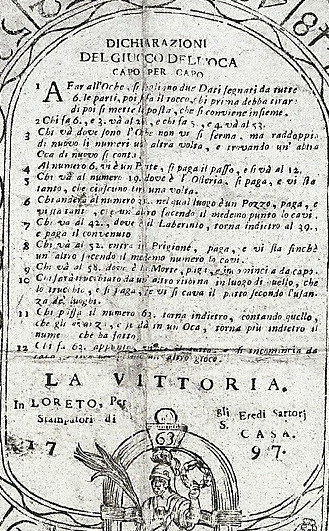 DICHIARAZIONI
DEL GIUCCO DELL'OCA
CAPO PER CAPO
1 A Far all'Oche, si pigliano due Dati segnati da tutte
6. le parti, poi si fa il tocco, chi prima debba tirar:
di poi si mette la posta, che si conviene insieme.
2 Chi fa 6., e 3. và al 26., e chi fa 5., e 4. và al 53.
3 Chi và dove sono l'Oche non vi si ferma. ma raddoppia
di nuovo li numeri un' altra volta, e trovando un' altra
Oca di nuovo si conta.
4 Al numero 6. vi è un Ponte, si paga il passo, e si và al 12.
5 Chi và al numero 19. dove è l'Osteria, si paga, e vi sta
tanto, che ciascuno tiri una volta.
6 Chi andera al numero 31. nel qual luogo è un Pozzo, paga, e
vi sta fin che un altro facendo il medemo punto lo cavi.
7 Chi va al 42., dove è il Laberinto, torna indietro al 39..
e paga il convenuto
8 Chi và al 52. entra in Prigione, paga, e vi sta finchè
un' altro facendo il medemo numero lo cavi.
9 Chi và al 58. dove è la Morte, paga, e incomincia da capo.
10 Chi sarà truciato da un' altro ritorna in luogo di quello, che
lo trucciò, e si paga, se vi si cava il patto secondo l'usan-
za de' luoghi.
11 Chi passa il numero 63. torna indietro, contando quello,
che gli avanza, e se dà in un Oca, torna più indietro il
numero che ha fatto
12 Chi fa 63. appunto, si incomincia da
un' altro gioco.
LA VITTORIA.
In LORETO, Per gli Eredi Sartorj
Stampatori di S. CASA.
1797.
63